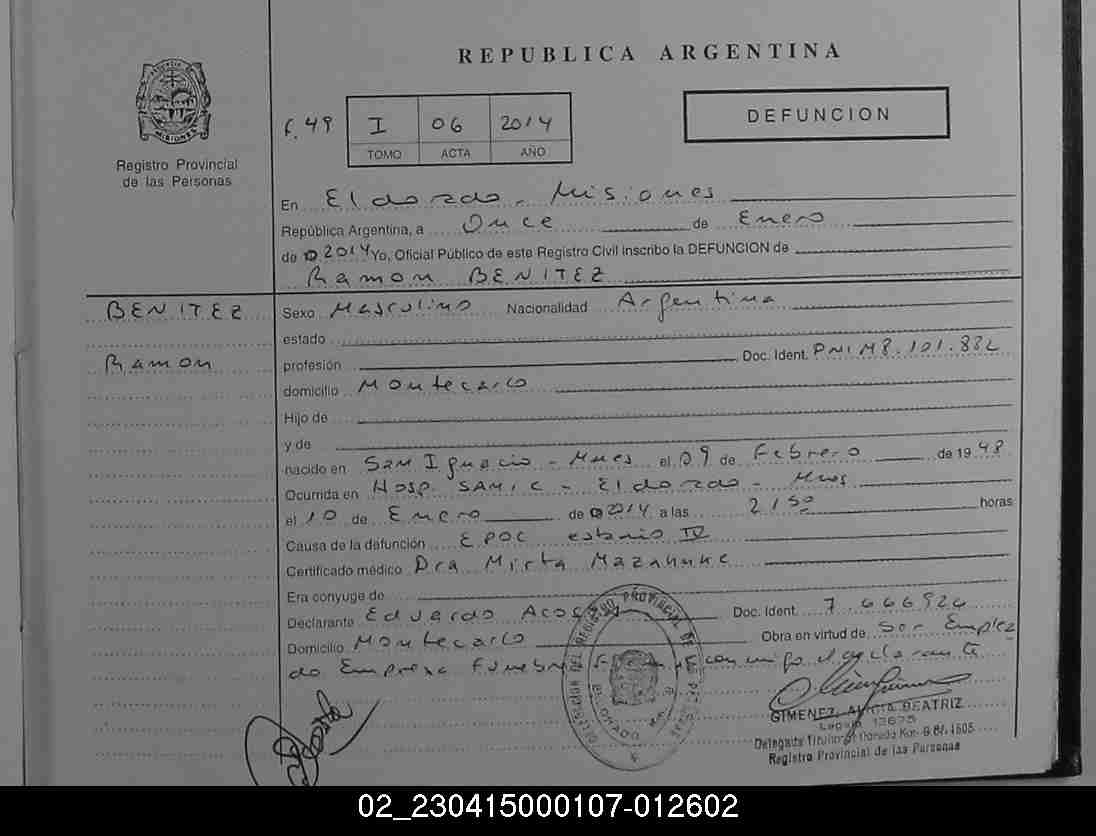 REPUBLICA ARGENTINA
Registro Provincial
de las Personas
F. 49 I 06 2014
TOMO ACTA AÑO
DEFUNCION
En Eldorado - Misiones
República Argentina, a Once de Enero
de 2014 Yo, Oficial Público de este Registro Civil inscribo la DEFUNCION de
Ramon BENITEZ
BENITEZ
Ramon
Sexo Masculino Nacionalidad Argentina
estado
profesión Doc. Ident. DNI M8.101.882
domicilio Montecarlo
Hijo de
y de
nacido en San Ignacio - Mnes el 09 de Febrero de 1948
Ocurrida en Hosp. SAMIC - Eldorado - Mnes
el 10 de Enero de 2014 a las 2150 horas
Causa de la defunción EPOC estadio IV
Certificado médico Dra Mirta
Era conyuge de
Declarante Eduardo Acosta Doc. Ident. 7.666926
Domicilio Montecarlo Obra en virtud de Ser Emplea
do Empresa Funebre conmigo el declarante
GIMENEZ, ALICIA BEATRIZ
Legajo
Registro Provincial de las Personas
02_230415000107-012602